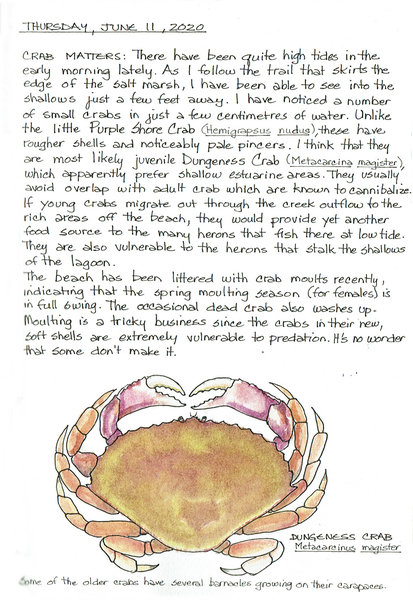 THURSDAY, JUNE 11, 2020
CRAB MATTERS: There have been quite high tides in the
early morning lately. As I follow the trail that skirts the
edge of the salt marsh, I have been able to see into the
shallows just a few feet away. I have noticed a number
of small crabs in just a few centimetres of water. Unlike
the little Purple Shore Crab (Hemigrapsus nudus), these have
rougher shells and noticeably pale pincers. I think that they
are most likely juvenile Dungeness Crab (Metacarcina magister),
which apparently prefer shallow estuarine areas. They usually
avoid overlap with adult crab which are known to cannibalize.
If young crabs migrate out through the creek outflow to the
rich areas off the beach, they would provide yet another
food source to the many herons that fish there at low tide.
They are also vulnerable to the herons that stalk the shallows
of the lagoon.
The beach has been littered with crab moults recently,
indicating that the spring moulting season (for females) is
in full swing. The occasional dead crab also washes up.
Moulting is a tricky business since the crabs in their new,
soft shells are extremely vulnerable to predation. It's no wonder
that some don't make it.
DUNGENESS CRAB
Metacarcinus magister
Some of the older crabs have several barnacles growing on their carapaces.